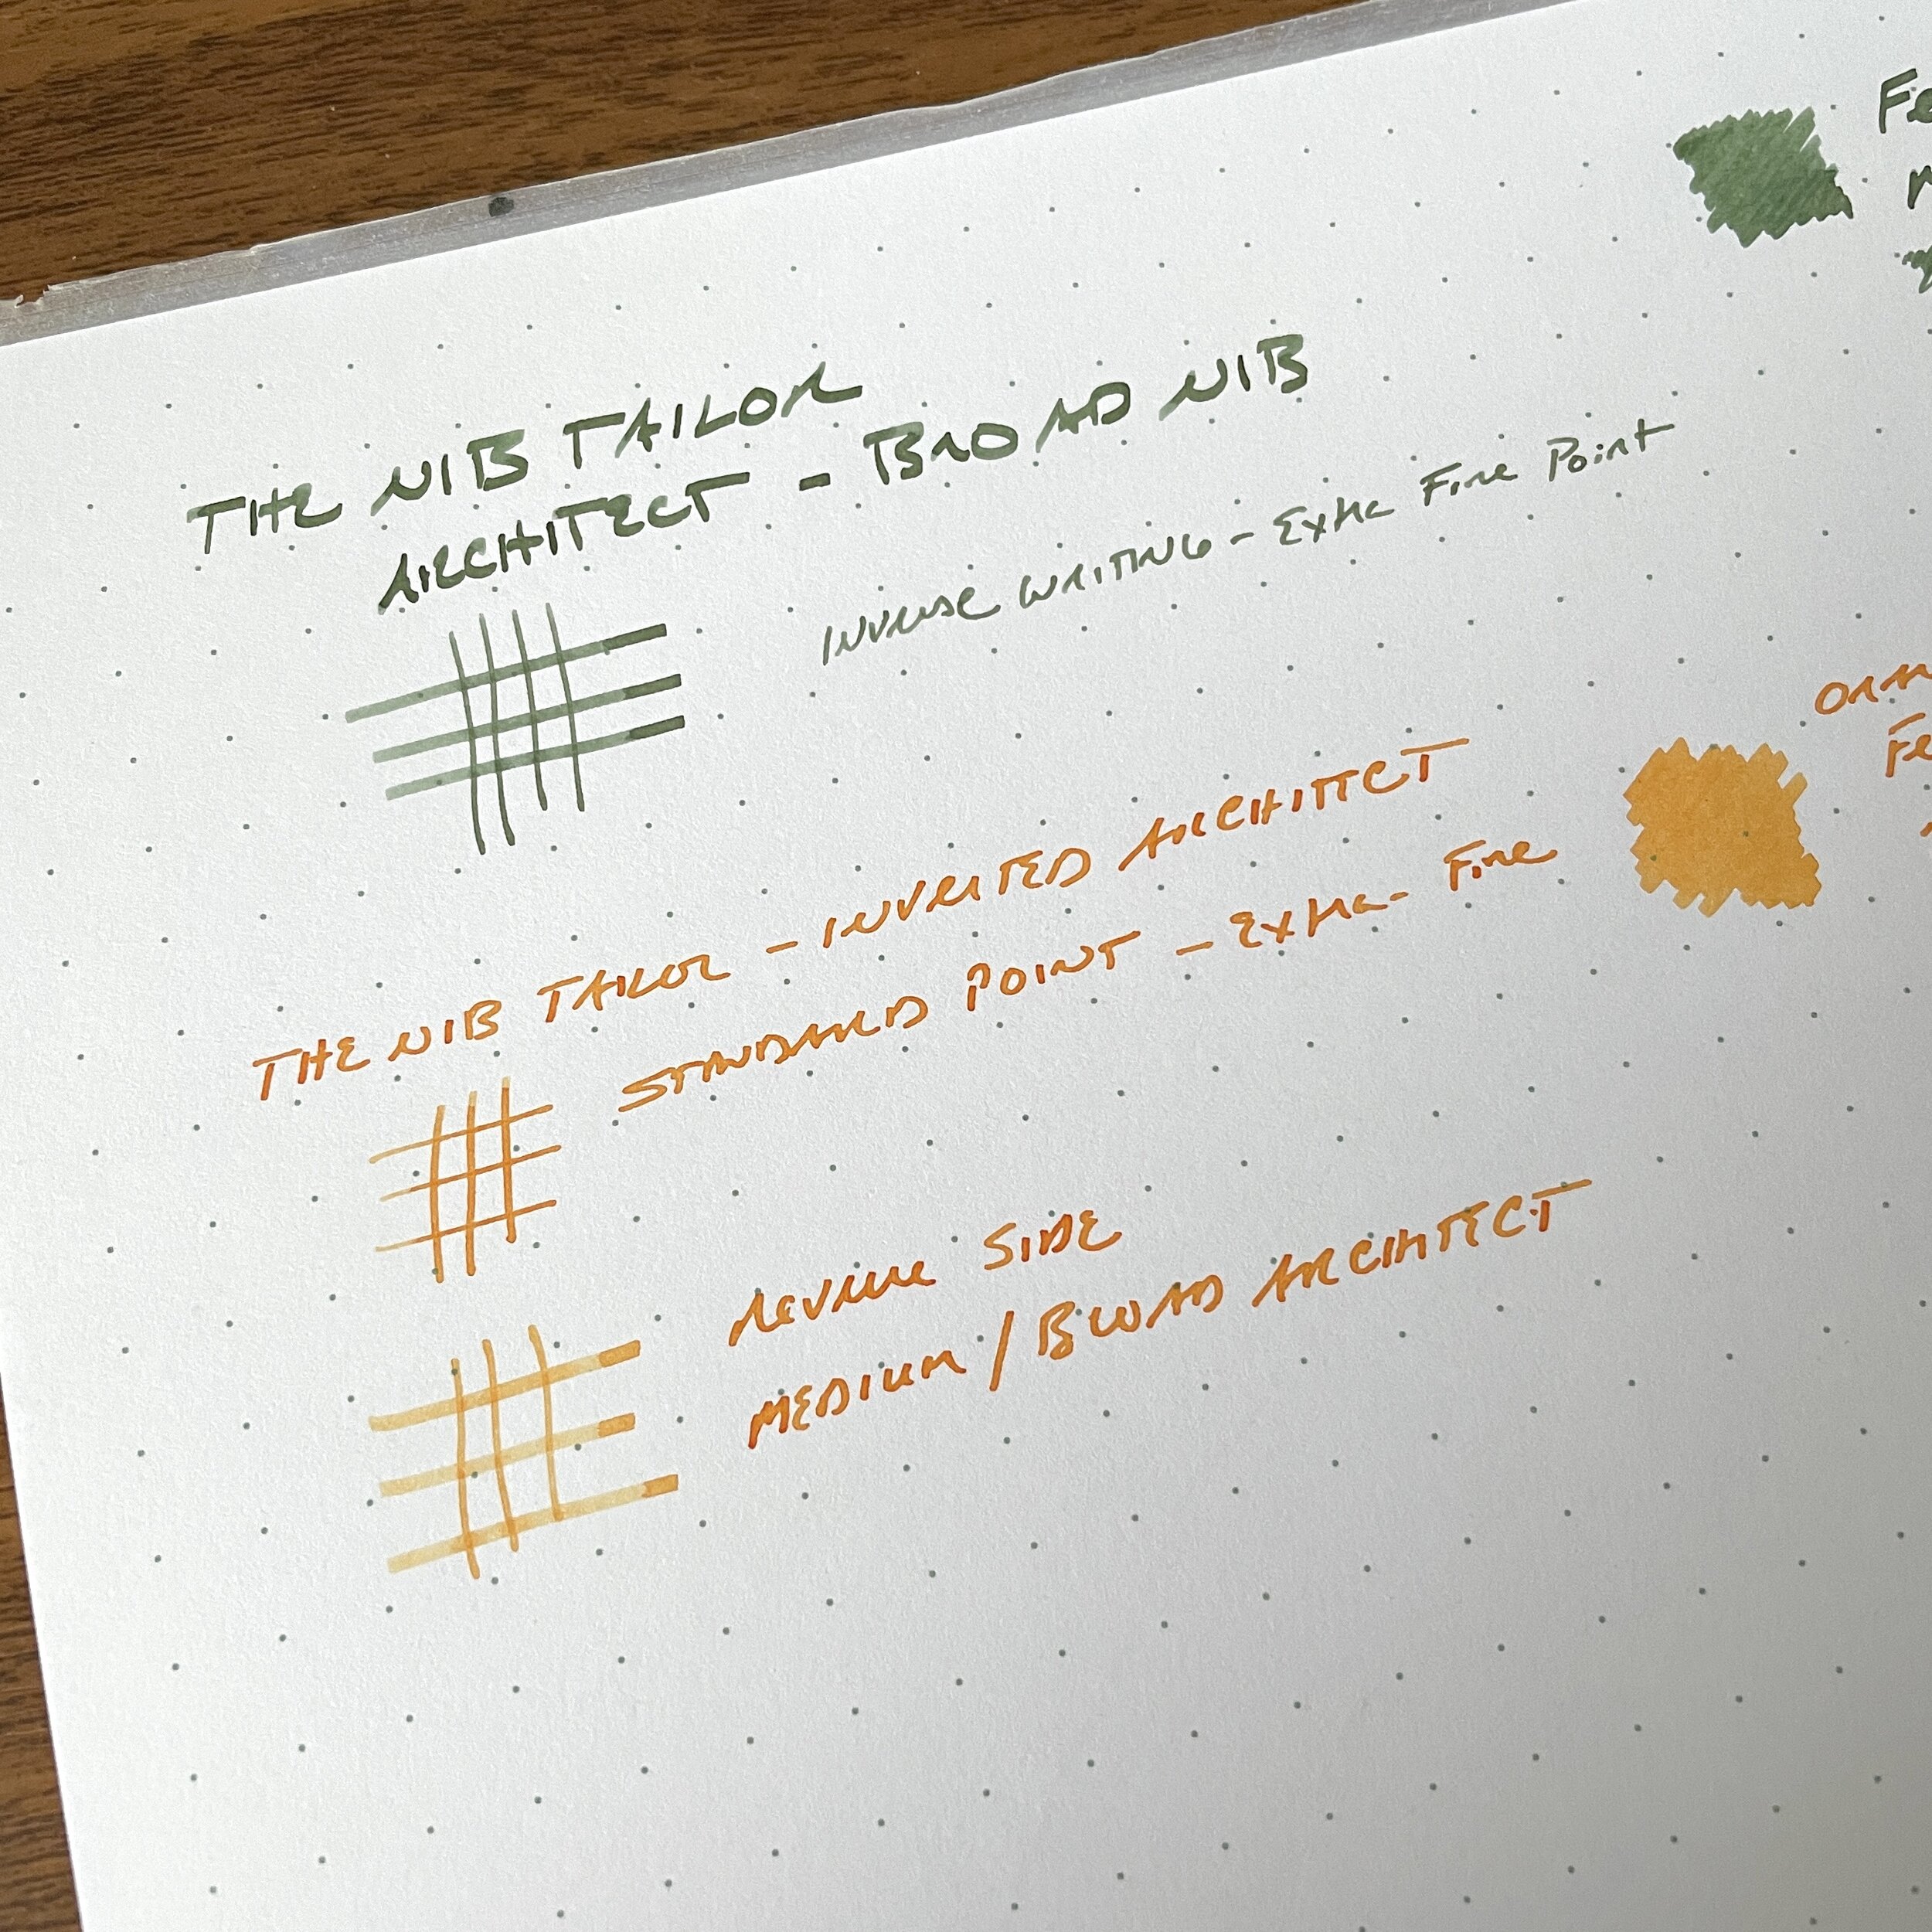 THE NIB TAILOR
ARCHITECT - BROAD NIB
INVERSE WRITING - Extra Fine Point
THE NIB TAILOR - INVERTED ARCHITECT
STANDARD POINT - Extra-Fine
REVERSE SIDE
MEDIUM / BROAD ARCHITECT